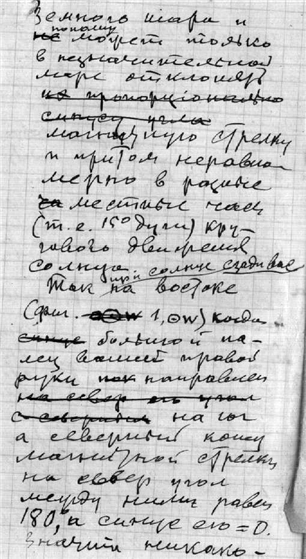 Земного шара и
поному
не может только
в незначительной
мере отклонять
не пропорционально
синусу угла
магнитную стрелку
и притом неравно-
мерно в разные
за местные часы
(т.е. 15° дуги) кру-
гового движения
солнца при солнце сзади вас
Так на востоке
(фиг. 1, ⊙W) когда
больший па-
лец вашей правой
руки направлен
на север его угол
с севером на юг
а северный конец
магнитной стрелки
на север угол
между ними равен
180°, а синус его = 0.
Значит никако-